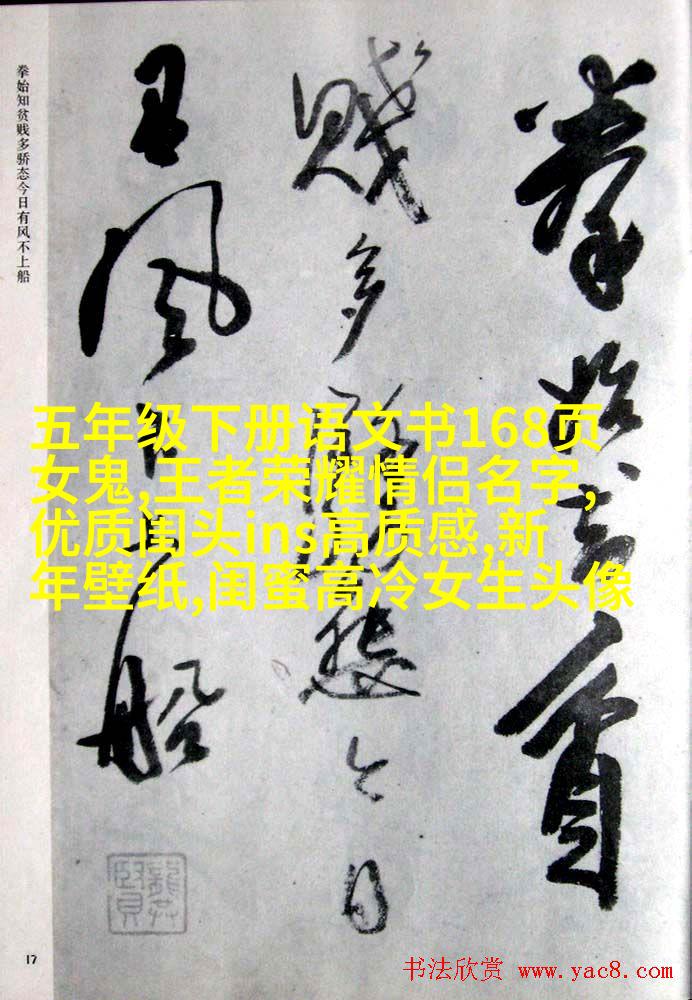 拳始知貧
賤多驕態今日
有風不上船
拳始知贫贱多骄态今日有风不上船
五年级下册语文书168页
女鬼,王者荣耀情侣名字,
优质闺头ins高质感,新
年壁纸,闺蜜高冷女生头像
17
书法欣赏 www.yac8.com